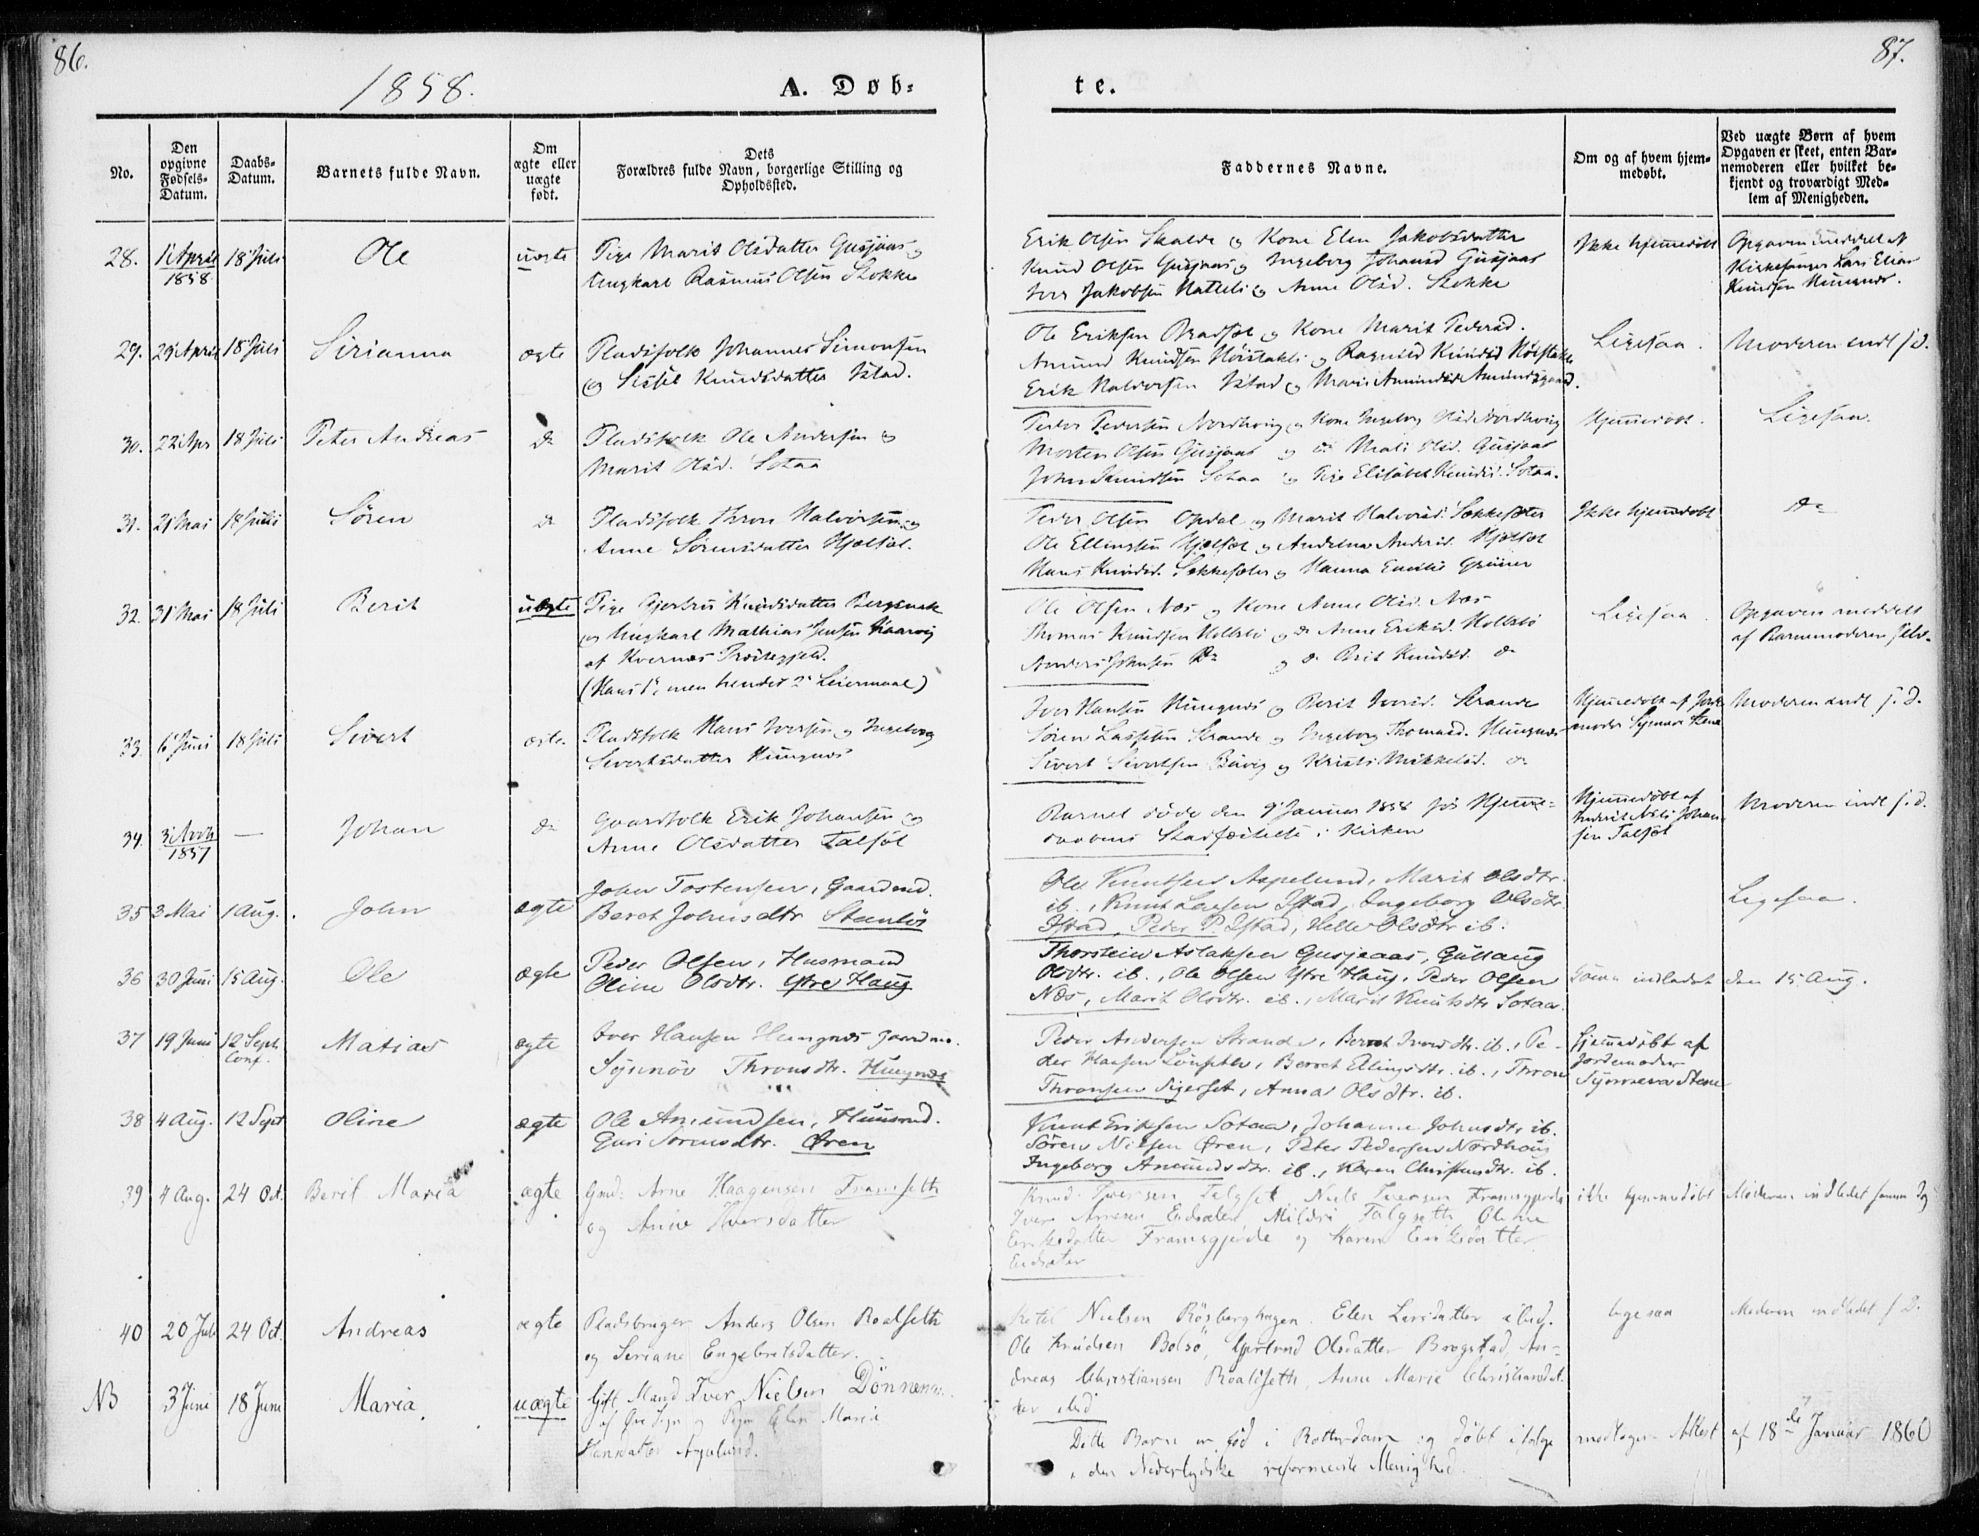 86.
87.
1858.
A. Døb-
te.
No.
Den opgivne Fødsels-Datum.
Daabs-Datum.
Barnets fulde Navn.
Om ægte eller uægte født.
Dets Forældres fulde Navn, borgerlige Stilling og Opholdssted.
Faddernes Navne.
Om og af hvem hjem-medøbt.
Ved uægte Børn af hvem Opgaven er skeet, enten Bar-nemoderen eller hvilket be-kjendt og troværdigt Med-lem af Menigheden.
28. 1 April 1858 18 Juli Ole uægte Pige Marit Olsdatter Gusjaas og
Ungkarl Rasmus Olsen Stokke
Erik Olsen Skalde og Kone Elen Jakobsdatter
Knud Olsen Gusjaas og Ingeborg Johansd Gusjaas
Iver Jakobsen og Anne Olsd. Stokke
Ikke hjemmedøbt
Opgaven meddelt af
Kirkesanger Lars Elias
Knudsen
29. 29 April 18 Juli Sirianna ægte Pladsfolk Johannes Simonsen
og Sissel Knudsdatter Istad.
Ole Eriksen og Kone Marit Pedersd.
Amund Knudsen og Ragnild Knudsd
Erik Halvorsen Istad og Marit Amundsd Amundsgaard.
Ligesaa.
Moderen indl s. D.
30. 22 Apr 18 Juli Peter Andreas do Pladsfolk Ole Andersen og
Marit Olsd. Sotaa
Peder Pedersen Nordhoug og Kone Ingeborg Olsd Nordhoug
Morten Olsen Gusjaas og do Mali Olsd. Gusjaas
John Knudsen Sotaa og Pige Elisabet Knudsd. Sotaa.
Hjemmedøbt.
Ligesaa.
31. 21 Mai 18 Juli Søren do Pladsfolk Thron Halvorsen og
Anne Sørensdatter Hjelset.
Peder Olsen Opdal og Marit Halvorsd. Sekkesæter
Ole Ellingsen Hjelset og Andrina Andersd. Hjelset
Hans Knudsd. Sekkesæter og Hanna Emilie Grüner
Ikke hjemmedøbt
do
32. 31 Mai 18 Juli Berit uægte Pige Gjertrud Knudsdatter
og Ungkarl Mathias Jensen
af Kvernæs Præstegjeld.
(Hans 1ste, men hendes 2det Leiermaal)
Ole Olsen Næs og Kone Anne Olsd. Næs
Thomas Knudsen Holtslø og do Anne Eriksd. Holtslø
Anders Johnsen do og do Berit Knudsd. do
Ligesaa.
Opgaven meddelt
af Barnemoderen selv.
33. 6 Juni 18 Juli Sivert ægte Pladsfolk Hans Iversen og Ingeborg
Sivertsdatter Hungnæs
Iver Hansen Hungnæs og Berit Iversd. Strande
Søren Lassesen Strande og Ingeborg Thomasd. Hungnæs
Sivert Sivertsen og Kristi Mikkelsd. do
Hjemmedøbt af Jorde
moder Synneva Stene
Moderen indl s. D.
34. 3 Novb 1857 — Johan do Gaardfolk Erik Johansen og
Anne Olsdatter Talset
Barnet døde den 9 Januar 1858 før Hjemme-
daabens Stadfæstelse i Kirken
Hjemmedøbt af
Nils Johan
sen Talset
Moderen indl s. d.
35 3 Mai 1 Aug. John ægte John Tostensen, Gaardmd.
Beret Johnsdtr Stenløs
Ole Knutsen Aspelund, Marit Olsdtr.
ib., Knut Larsen Istad, Ingeborg Olsdtr
Istad, Peder P. Istad, Helle Olsdtr ib.
Ligesaa.
36 30 Juni 15 Aug. Ole ægte Peder Olsen, Husmand
Oline Olsdtr. Ytre Haug
Thorstein Aslaksen Gusjeaas, Gullaug
Olsdtr. ib., Ole Olsen Ytre Haug, Peder Olsen
Næs, Marit Olsdtr. ib., Marit Knutsdtr Sotaa.
indledet den 15. Aug.
37 19 Juni 12 Sept. Conf. Matias ægte Iver Hansen Hungnæs gaardm.
Synnøv Thronsdtr. Hungnæs
Peder Andersen Strande, Berret Iversdtr. ib., Pe-
der Hansen Lønseter, Berret Ellingsdtr. ib., Thron
Thronsen Sigerset, Anna Olsdtr. ib.
Hjemmedøbt af
Jordemoder
Synneva Stene
38 4 Aug. 12 Sept Oline ægte Ole Amundsen, Husmd.
Guri Sørensdtr. Øren
Knut Eriksen Sotaa, Johanne Johnsdtr ib.
Søren Nilsen Øren, Peter Pedersen Nordhoug
Ingeborg Amundsdtr. ib., Karen Christensdtr. ib.
39 4 Aug. 24 Oct. Berit Maria ægte Gmd: Arne Haagensen Framseth
og Anne Iversdatter
Knud Iversen Talgset, Niels Iversen Framsgjerde
Iver Arnesen Eidsæter, Mildri Talgseth, Oline
Eriksdatter Framsgjerde og Karen Eriksdatter
Eidsæter
ikke hjemmedøbt
Moderen indledet samme Dag
40 20 Juli 24 Oct. Andreas ægte Pladsbruger Anders Olsen Roalseth
og Seriane Engebretsdatter.
Nielsen Røsberghagen. Elen Larsdatter ibid.
Ole Knudsen Bolsø, Gjertrud Olsdatter Brogstad, An-
dreas Christiansen Roaldseth, Anne Marie Christiansdat
ter ibid
ligesaa
Moderen indledet s. D.
NB 3 Juni 18 Juni Maria. uægte Gift Mand Iver Nielsen Dønnem
af Øre Sogn og Pigen Elen Maria
Hansdatter
Dette Barn er fød i Rotterdam og døbt ifølge
i den Nederlydske reformerte Menighed.
modtagen Attest af 18de Januar 1860